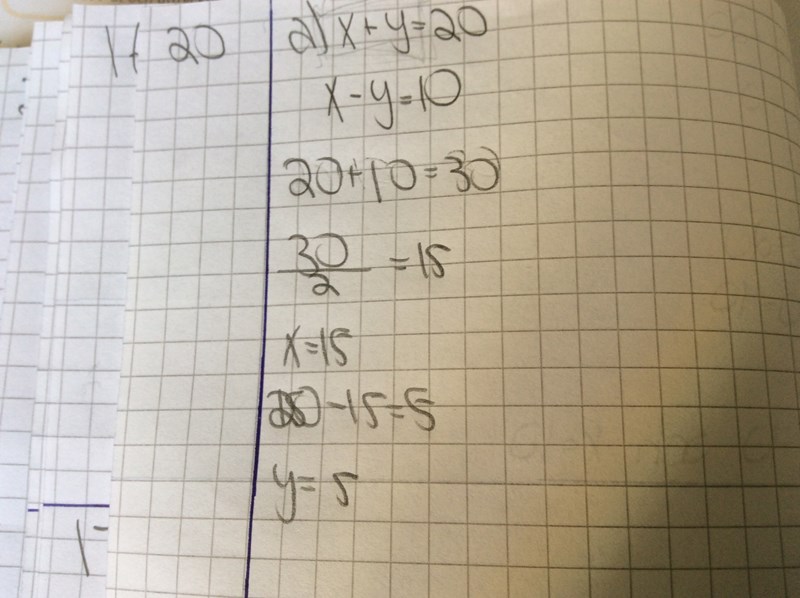 1) 20
2) x+y=20
x-y=10
20+10=30
30/2 =15
x=15
20-15=5
y=5